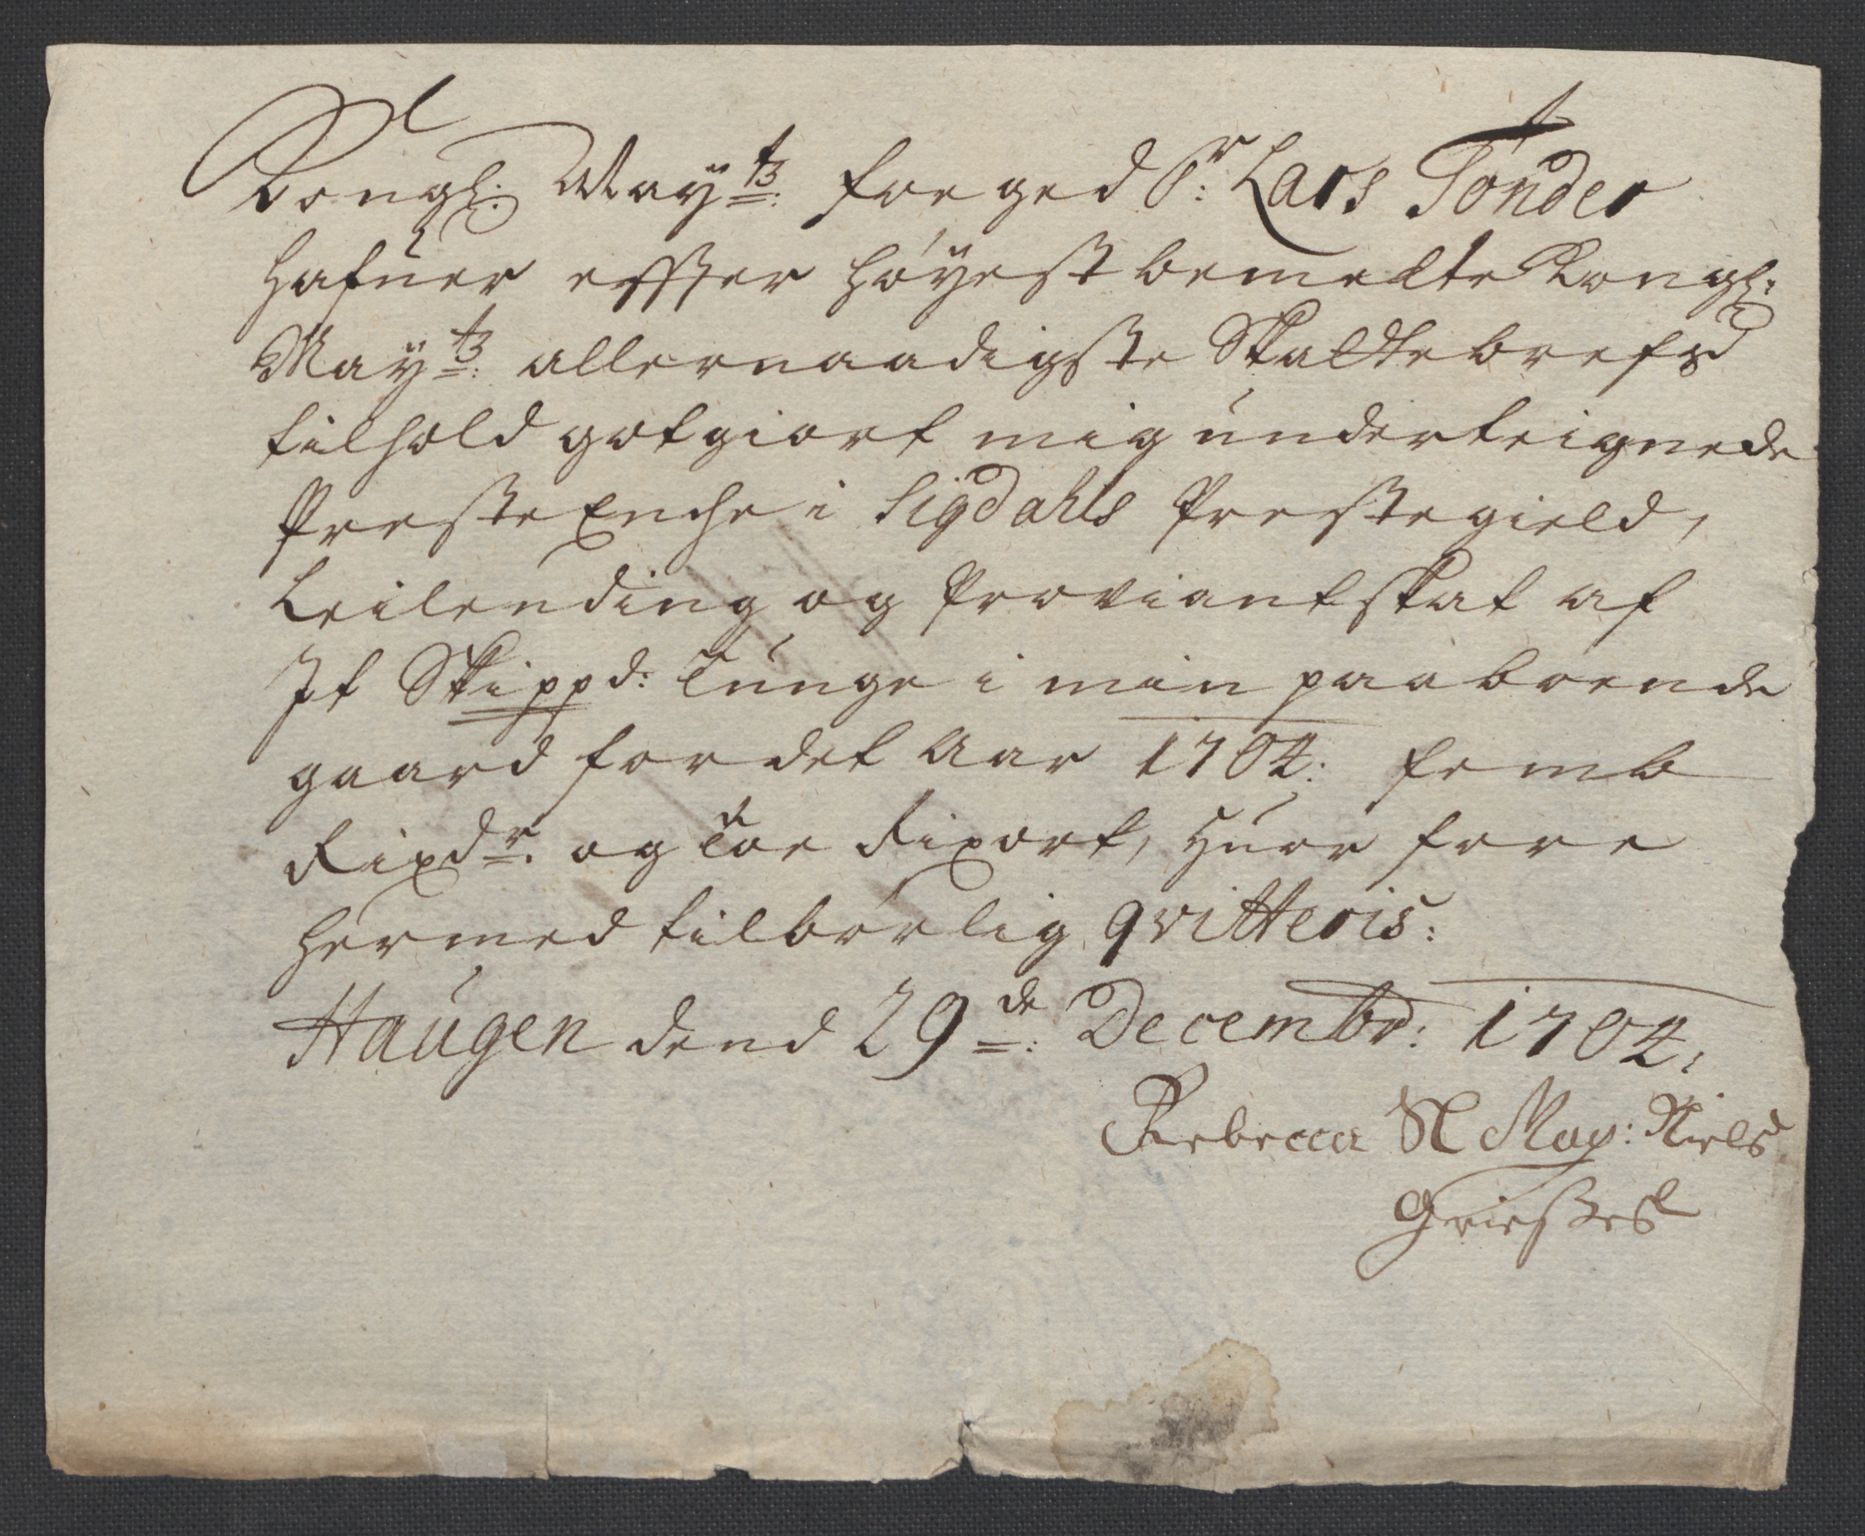 Kongl: Mayts: foeged Sr: Lars Tønder
hafuer effter høyest bemelte Kongl:
Mayts: allernaadigste Skattebrefs
tilhold gotgiort mig underteignede
Preste Enche i Sigdahls Prestegield,
Leilending og Proviantskat af
It Skippd: tunge i min paaboende
gaard for det Aar 1704: femb
Rixdr: og toe Rixort, huor fore
hermed tilbørlig qvitteris:
Haugen dend 29de: Decembr: 1704:
Rebecca Niels